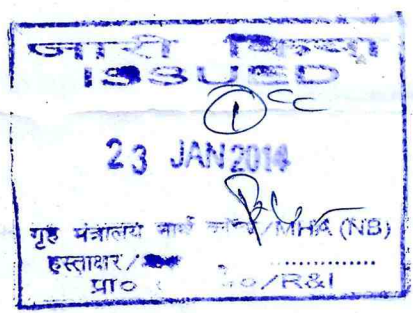 जारी किया
ISSUED
① CC
23 JAN 2014
गृह मंत्रालय नार्थ /MHA (NB)
हस्ताक्षर/
प्रा० /R&I